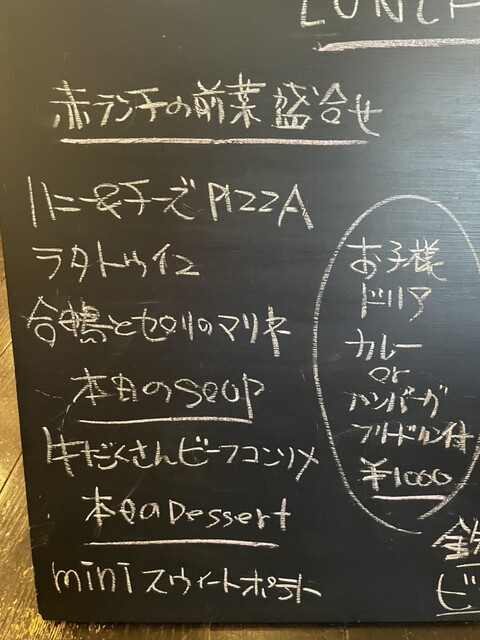 LUNCH
赤ランチの前菜 盛合せ
ハニー&チーズ PIZZA
ラタトゥイユ
合鴨とセロリのマリネ
本日のSOUP
牛だくさんビーフコンソメ
本日のDessert
mini スウィートポテト
お子様
ドリア
カレー
or
ハンバーガ
フリードリンク付
¥1000
ビ